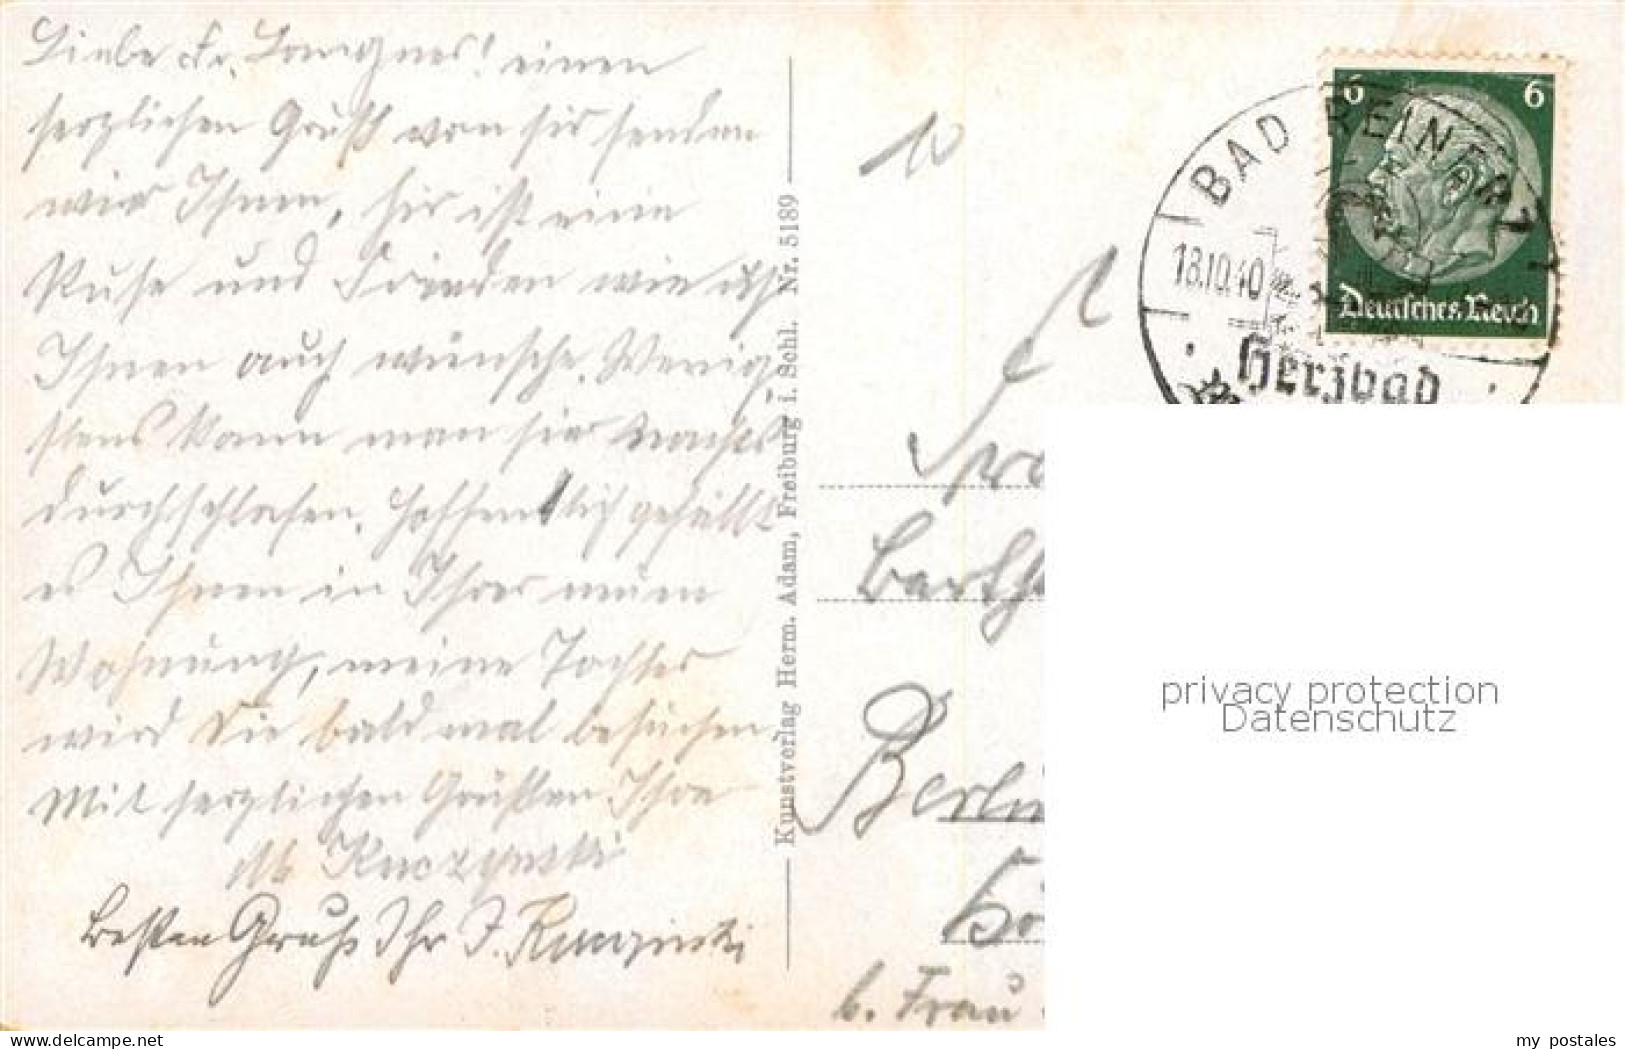 Liebe Fr. Langner! einen
herzlichen Gruß von hir senden
wir Ihnen, hir ist eine
Ruhe und Frieden wie ich
Ihnen auch wünsche. Wenig
stens kann man hier Nachts
durchschlafen. Hoffentlich gefällt
es Ihnen in Ihrer neuen
Wohnung, meine Tochter
wird Sie bald mal besuchen.
Mit herzlichen Grüßen Ihre
Kuczynski
Besten Gruß Ihr J. Kuczinski
Kunstverlag Herm. Adam, Freiburg i. Schl. Nr. 5189
BAD REINERZ
18.10.40
Herzbad
6 6
Deutsches Reich
Berlin
b. Frau
privacy protection
Datenschutz
bellecourette.com
my postales